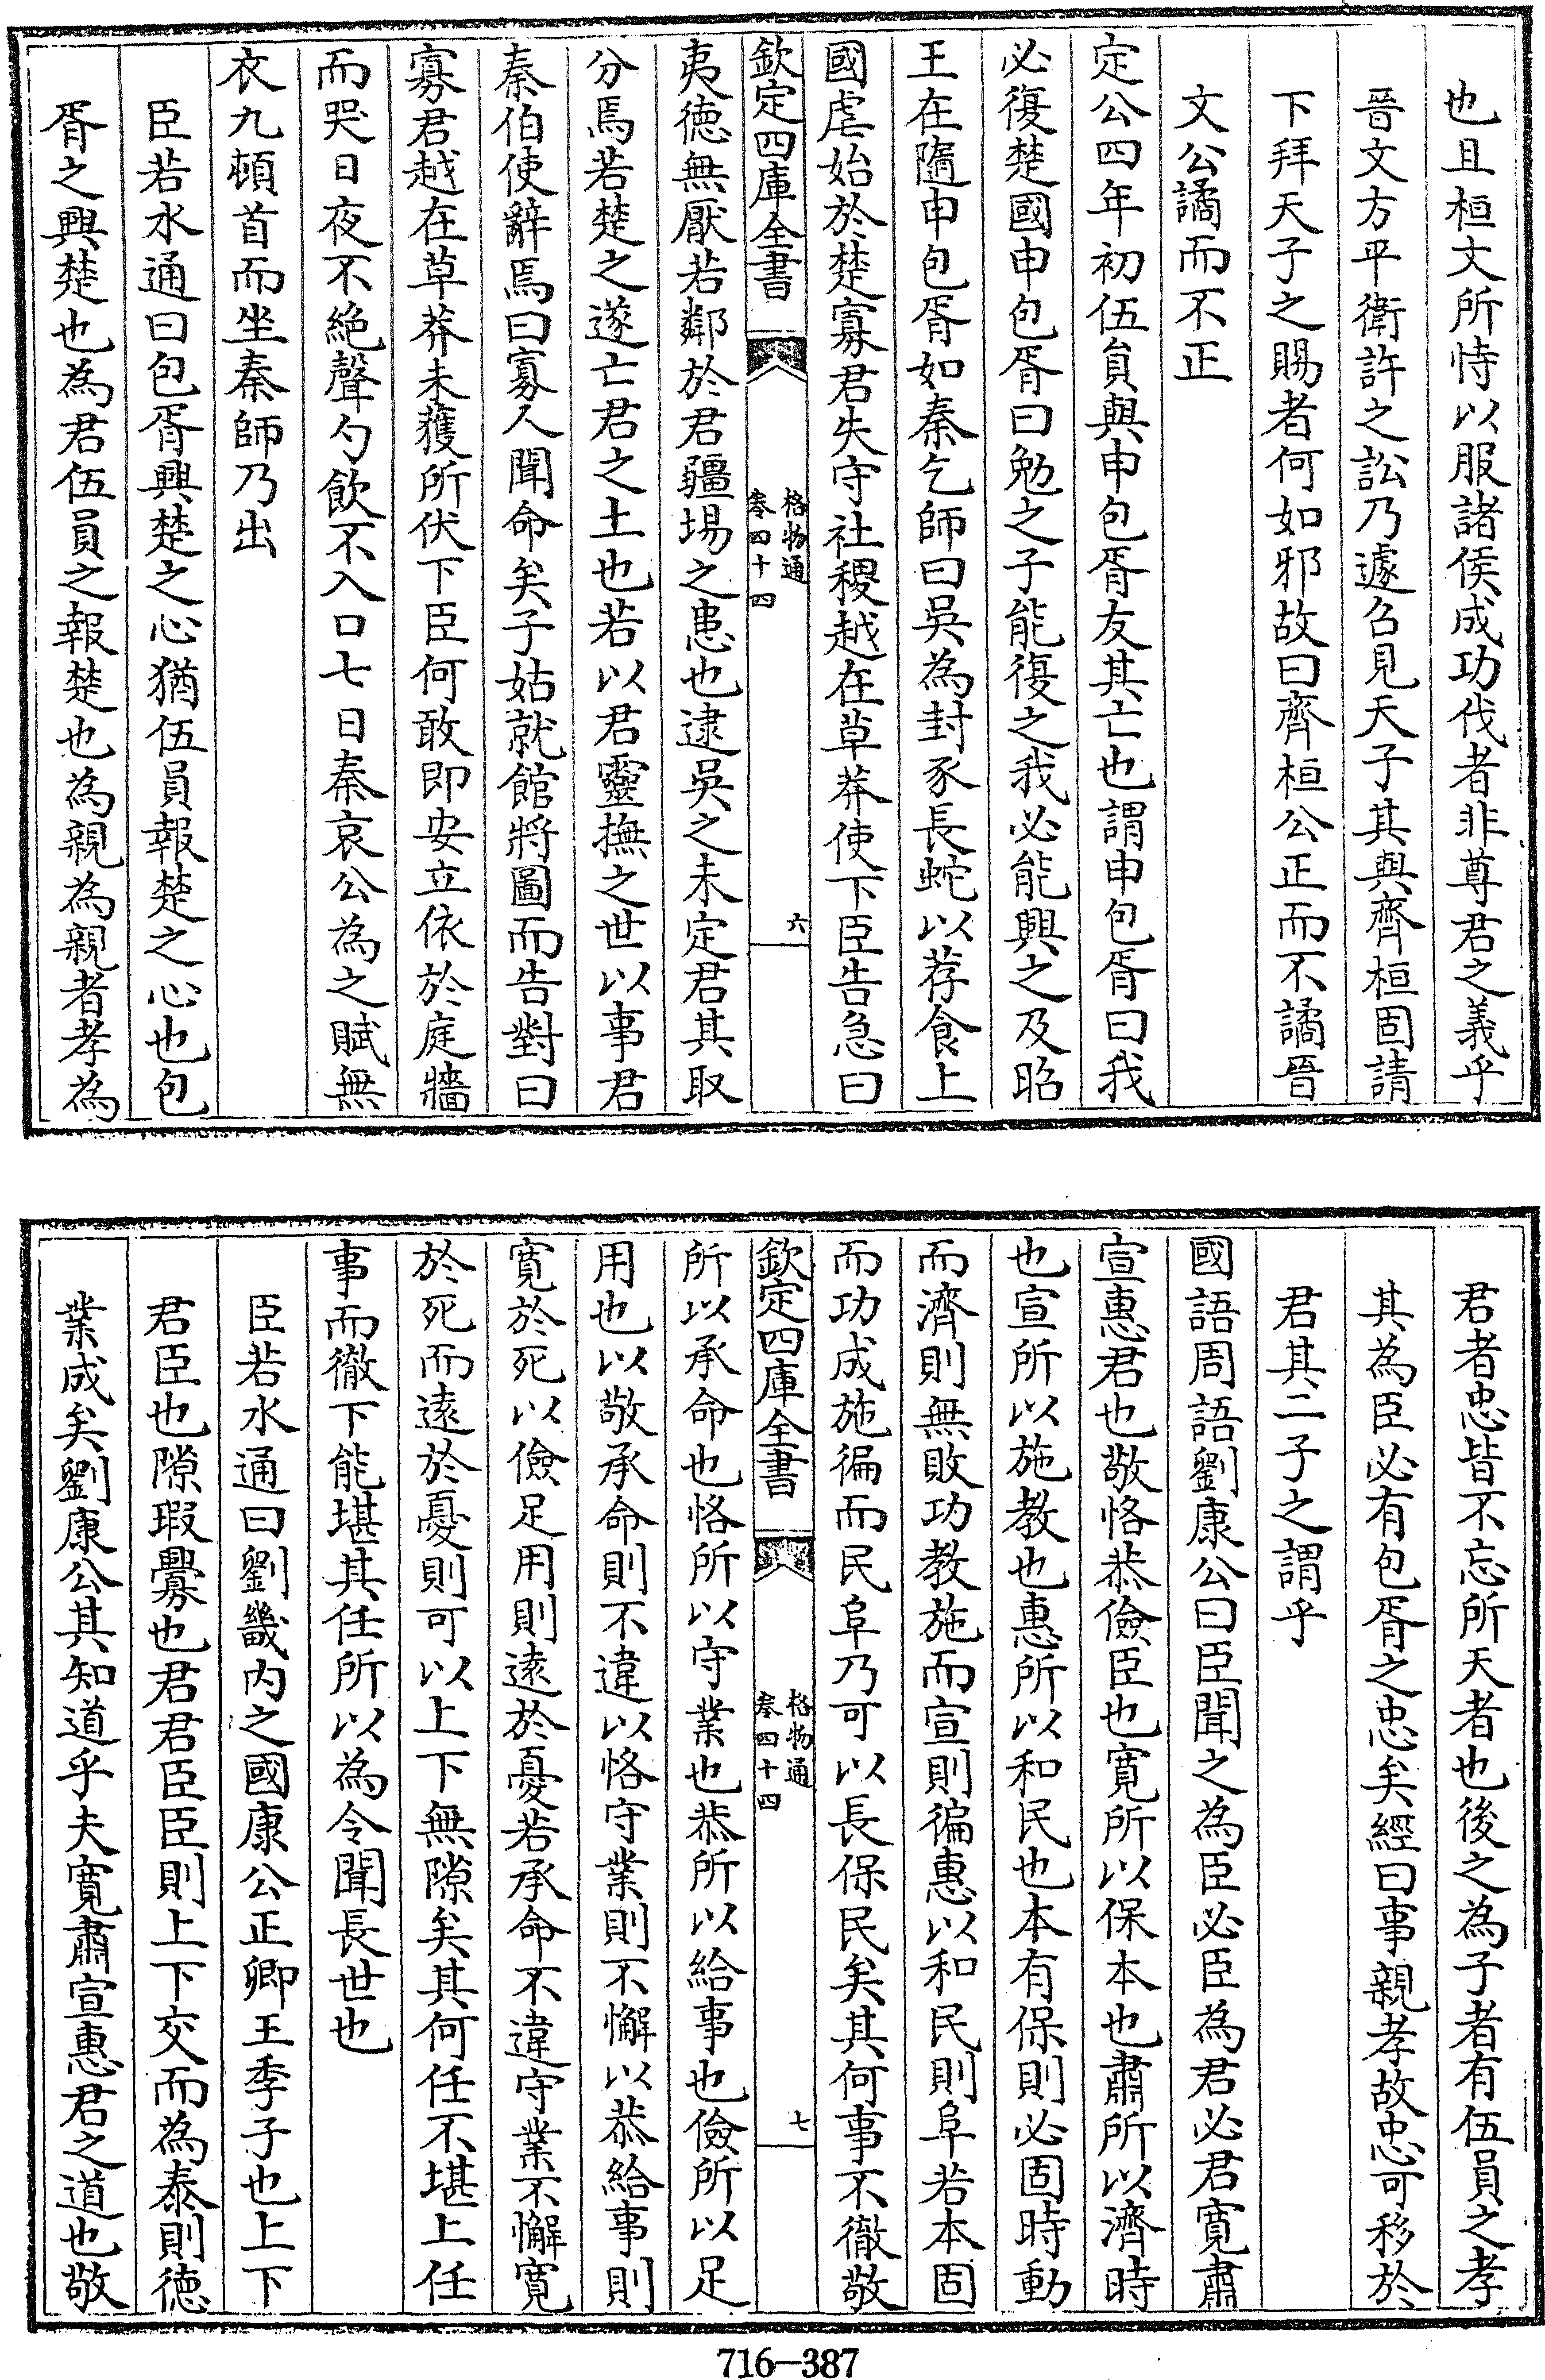 也且桓文所恃以服諸侯成功伐者非尊君之義乎
晉文方平衛許之訟乃遽召見天子其與齊桓固請
下拜天子之賜者何如邪故曰齊桓公正而不譎晉
文公譎而不正
定公四年初伍員與申包胥友其亡也謂申包胥曰我
必復楚國申包胥曰勉之子能復之我必能興之及昭
王在隨申包胥如秦乞師曰吳為封豕長蛇以荐食上
國虐始於楚寡君失守社稷越在草莽使下臣告急曰
欽定四庫全書
格物通
卷四十四
六
夷徳無厭若鄰於君疆埸之患也逮吳之未定君其取
分焉若楚之遂亡君之土也若以君靈撫之世以事君
秦伯使辭焉曰寡人聞命矣子姑就館將圖而告對曰
寡君越在草莽未獲所伏下臣何敢即安立依於庭牆
而哭日夜不絶聲勺飲不入口七日秦哀公為之賦無
衣九頓首而坐秦師乃出
臣若水通曰包胥興楚之心猶伍員報楚之心也包
胥之興楚也為君伍員之報楚也為親為親者孝為
君者忠皆不忘所天者也後之為子者有伍員之孝
其為臣必有包胥之忠矣經曰事親孝故忠可移於
君其二子之謂乎
國語周語劉康公曰臣聞之為臣必臣為君必君寛肅
宣惠君也敬恪恭儉臣也寛所以保本也肅所以濟時
也宣所以施教也惠所以和民也本有保則必固時動
而濟則無敗功教施而宣則徧惠以和民則阜若本固
而功成施徧而民阜乃可以長保民矣其何事不徹敬
欽定四庫全書
格物通
卷四十四
七
所以承命也恪所以守業也恭所以給事也儉所以足
用也以敬承命則不違以恪守業則不懈以恭給事則
寛於死以儉足用則逺於憂若承命不違守業不懈寛
於死而逺於憂則可以上下無隙矣其何任不堪上任
事而徹下能堪其任所以為令聞長世也
臣若水通曰劉畿内之國康公正卿王季子也上下
君臣也隙瑕釁也君君臣臣則上下交而為泰則徳
業成矣劉康公其知道乎夫寛肅宣惠君之道也敬
716-387